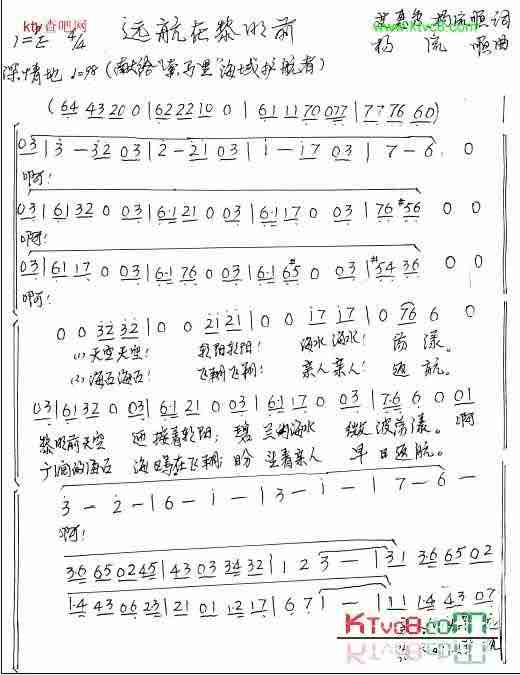 ktv查吧网
www.ktvc8.com
远航在黎明前
1=E 4/4
杨流顺词
杨流顺曲
深情地 J=98 (献给索马里海域护航者)
(64 43 20 0|62 22 10 0|61 11 70 077|77 76 60)
03|3 - 32 03|2 - 21 03|1 - 17 03|7 - 6 . 0
啊!
03|61 32 0 03|6·1 21 0 03|6·1 17 0 03|76 #56 0 0
啊!
03|61 17 0 03|6·1 76 0 03|6·1 65 0 03|#54 36 0 0
啊!
0 0 32 32|0 0 21 21|0 0 17 17|0 76 6 0
(1) 天空天空! 朝阳朝阳! 海水海水! 荡漾。
(2) 海石海石! 飞翔飞翔! 亲人亲人! 返航。
03|61 32 0 03|6·1 21 0 03|6·1 17 0 03|7·6 6 0 01
黎明前天空 迎接着朝阳; 碧兰的海水 微波荡漾。 啊
海鸥在飞翔; 盼望着亲人 早日返航。
3 - 2 -|6 - 1 -|3 - 1 -|7 - 6 -
啊!
36 65 02 45|43 03 34 32|1 2 3 -|31 36 65 02
14 43 06 23|21 01 12 17|6 7 1 -|11 14 43 07
KTvc8.com